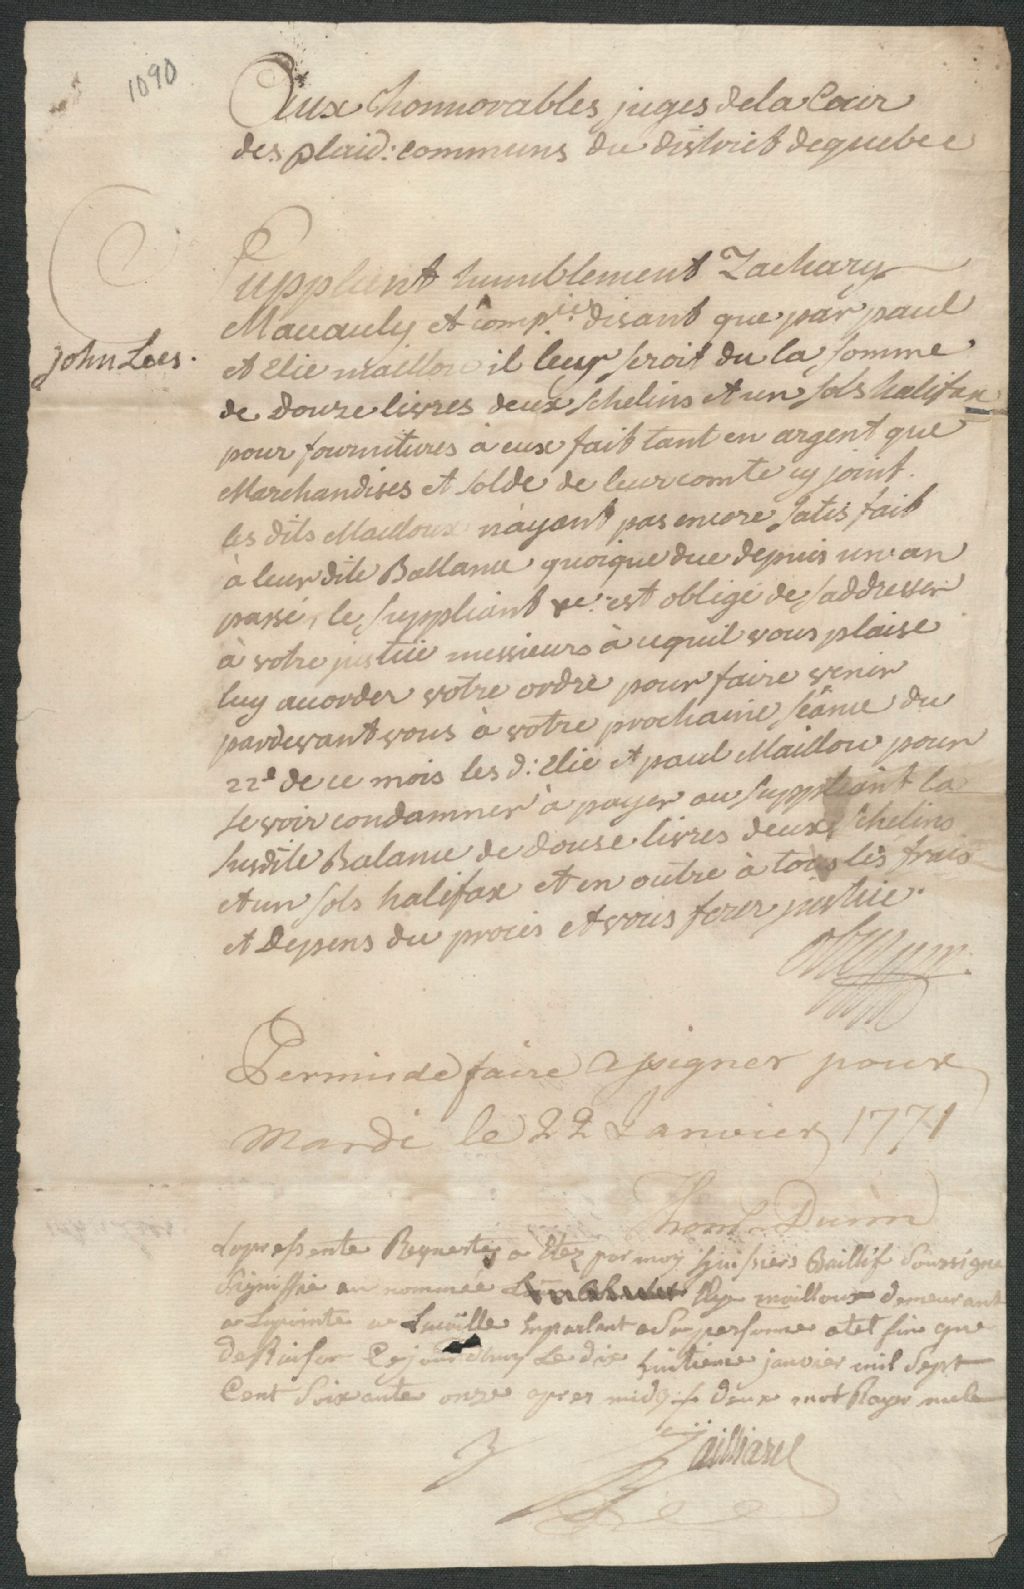 1090
Aux honnorables juges dela Cour
des plaid: communs du district dequebec
Suppliant humblement Zachary
Macauly et Comp.ie disant que par paul
John Lees.
et Elie maillou il leur seroit du la somme
de Douze livres deux schelins et un sols halifax
pour fournitures à eux fait tant en argent que
Marchandises et solde de leur comte cy joint.
les dits Mailloux n'ayant pas encore satisfait
à leur dite Ballance quoique due depuis un an
passé, le suppliant est obligé de saddresser
à votre justice messieurs à cequil vous plaise
luy accorder votre ordre pour faire venir
pardevant vous à votre prochaine séance du
22e de ce mois les d: Elie et paul Maillou pour
se voir condamner à payer au Suppliant la
susdite Balance de douse livres deux schelins
et un sols halifax et en outre à tous les frais
et Depens du procès et vous ferez justice.
Permis de faire assigner pour
Mardi le 22 Janvier 1771
Thom.s Dunn
La presente Requeste a Etez par moy huissiers Baillif Soussigne
Signiffié au nommée Elye mailloux demeurant
a Lapointe de Levi ville En parlant a Sa personne a tel fin que
de Raison Ce jourdhuy Le dix huitieme janvier mil Sept
Cent Soixante onze apres midy deux mot Rayer nule